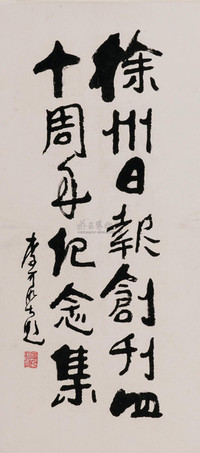 徐州日報創刊四
十周年纪念集
李可染题